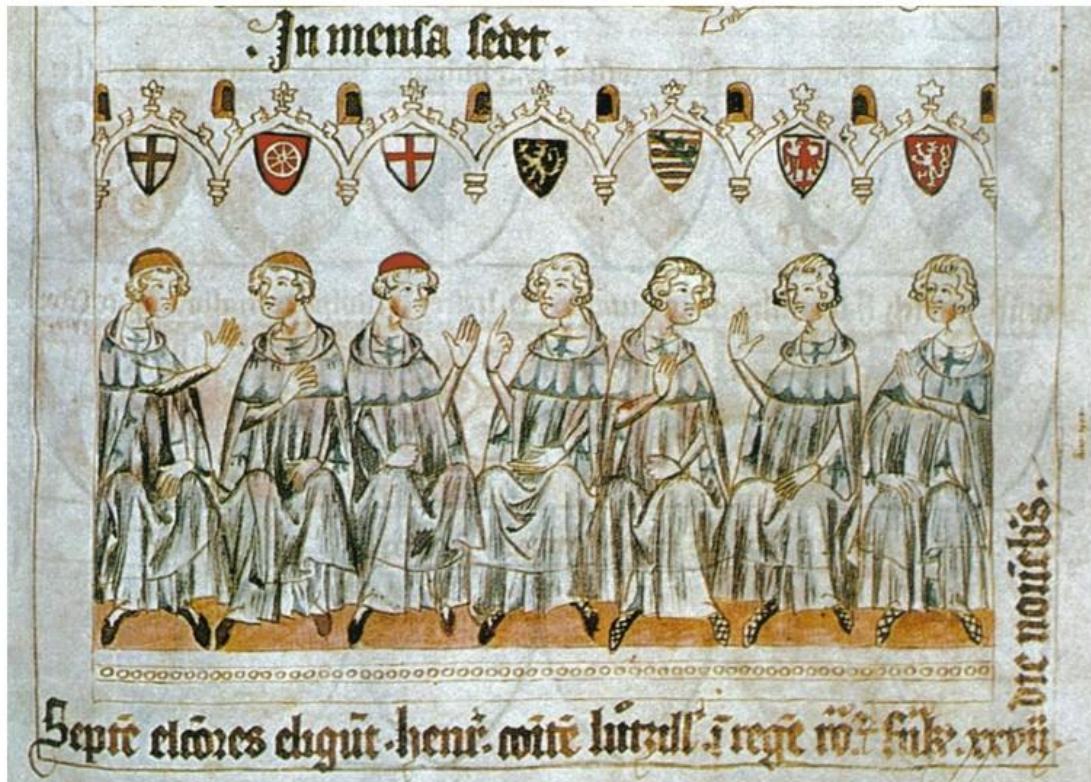 . In mensa sedet .
Septē elcōres eligūt . henr̄ . coītē lutzill' . ī regē xxvii .
die novēbis .